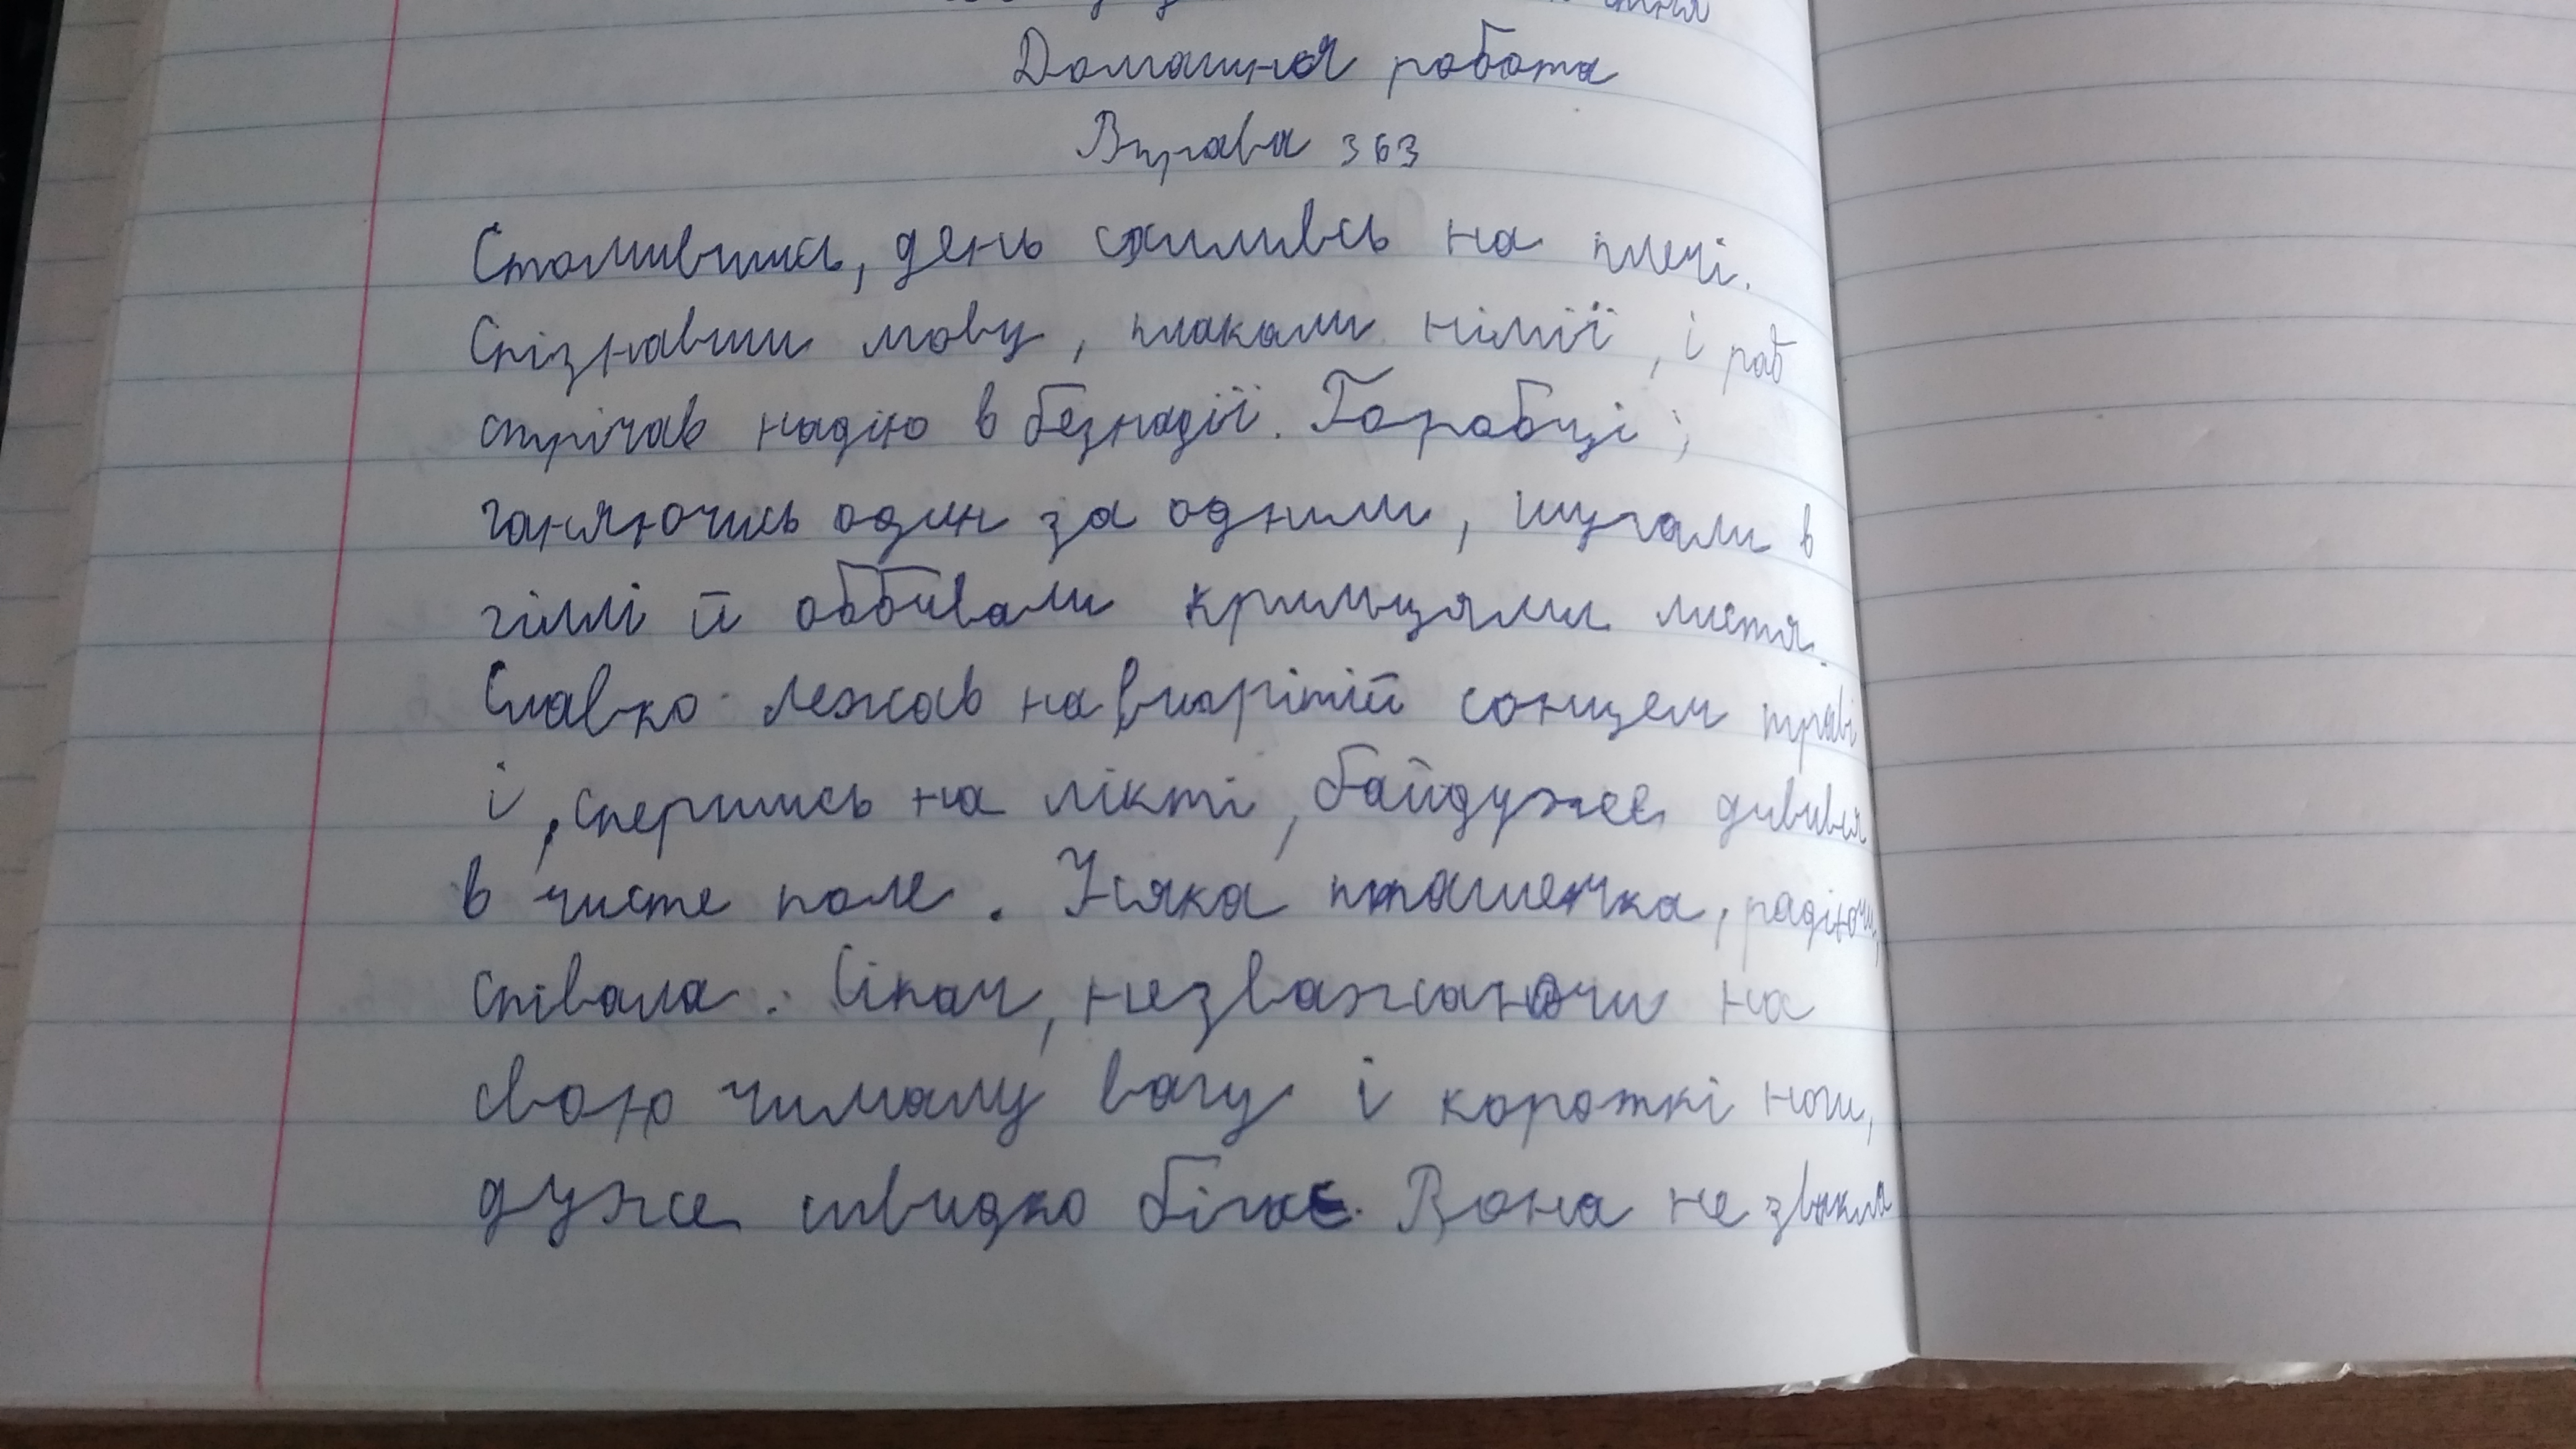 Домашня робота
Вправа 363
Стомившись, день схиливсь на плечі.
Спізнавши мову, плакали німії, і раб
стрічав надію в безнадії. Горобці,
ганяючись один за одним, шугали в
гіллі й оббивали крильцями листя.
Славко лежав на вигрітій сонцем траві
і, спершись на лікті, байдуже дивився
в чисте поле. Усяка пташечка, радіючи,
співала. Сікач, незважаючи на
свою чималу вагу і короткі ноги,
дуже швидко бігає. Вона не звикла